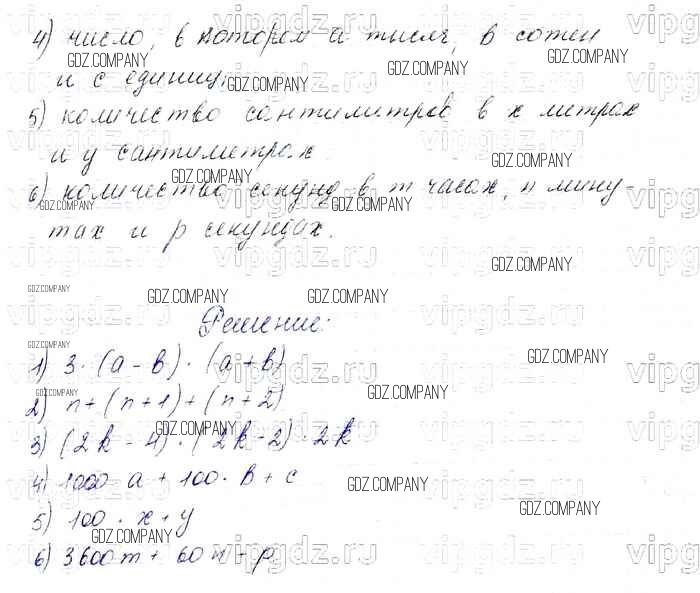 4) число, в котором a тысяч, b сотен
и c единиц;
5) количество сантиметров в x метрах
и y сантиметрах.
6) количество секунд в m часах, n мину-
тах и p секундах.
Решение:
1) 3 · (a - b) · (a + b)
2) n + (n + 1) + (n + 2)
3) (2k - 4) · (2k - 2) · 2k
4) 1000 a + 100 · b + c
5) 100 · x + y
6) 3600m + 60n + p
GDZ.COMPANY
vipgdz.ru